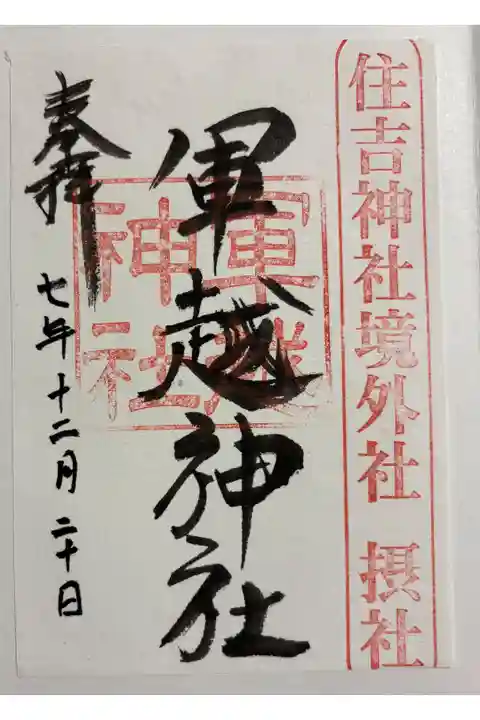 住吉神社境外社 摂社
軍越神社
軍越
神社
奉拝
七年十二月二十日